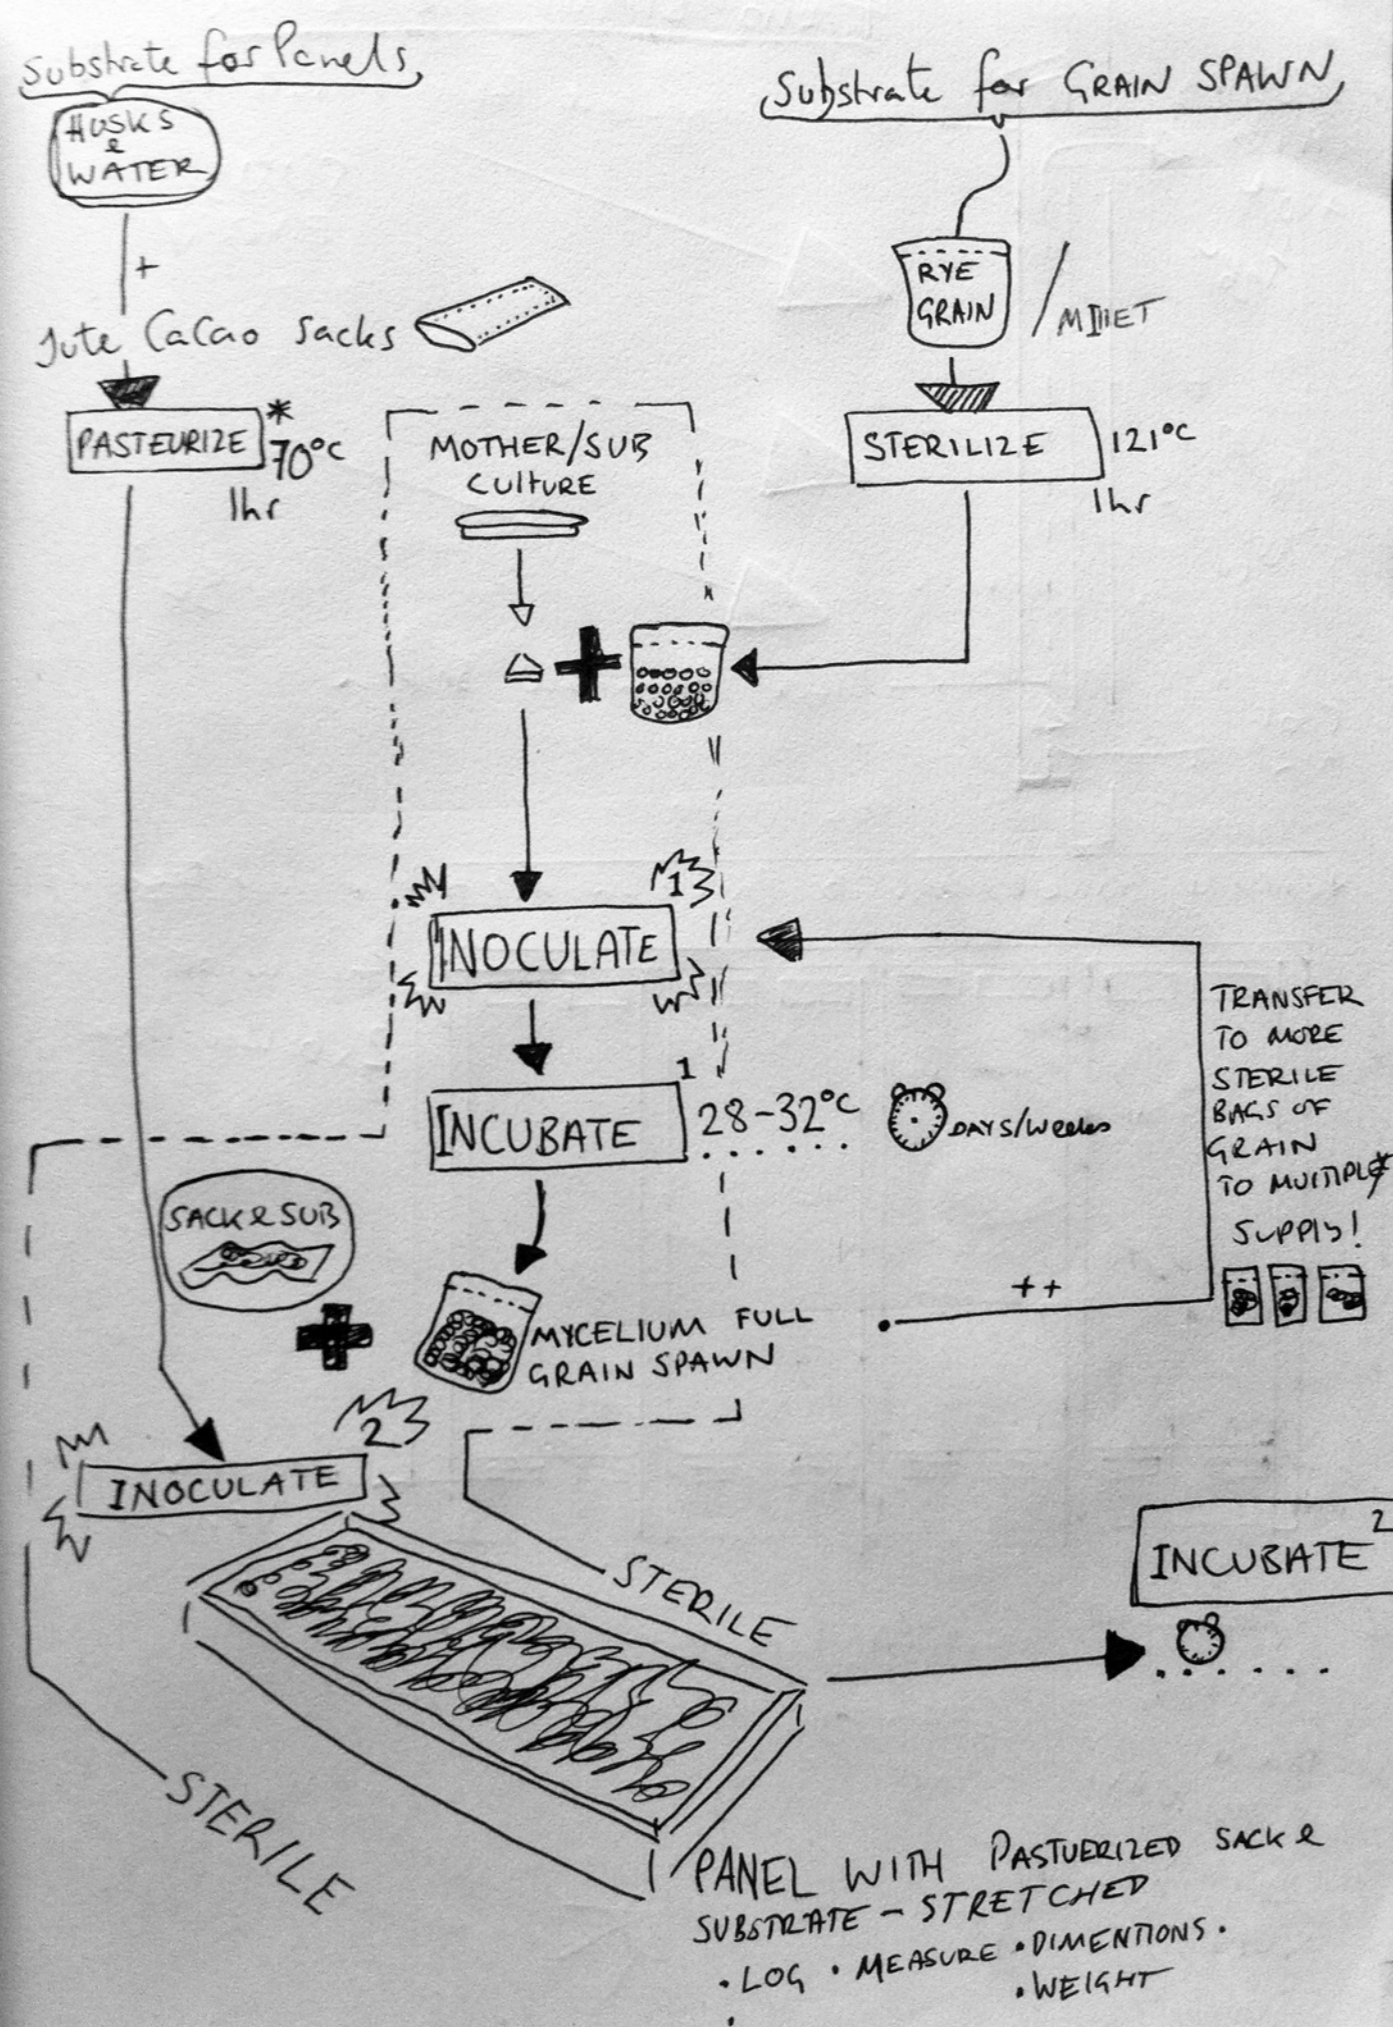 Substrate for Panels
HUSKS
&
WATER
+
Jute Cacao sacks
PASTEURIZE
*
70°C
1hr
Substrate for GRAIN SPAWN
RYE
GRAIN
/ MIllET
STERILIZE
121°C
1hr
MOTHER/SUB
CUltURE
+
1
INOCULATE
1
INCUBATE
28-32°C
DAYS/Weeks
TRANSFER
TO MORE
STERILE
BAGS OF
GRAIN
TO MULTIPLY
SUPPLY!
++
SACK & SUB
+
MYCELIUM FULL
GRAIN SPAWN
2
INOCULATE
STERILE
STERILE
2
INCUBATE
PANEL WITH PASTUERIZED SACK &
SUBSTRATE - STRETCHED
• LOG • MEASURE • DIMENTIONS •
• WEIGHT
•